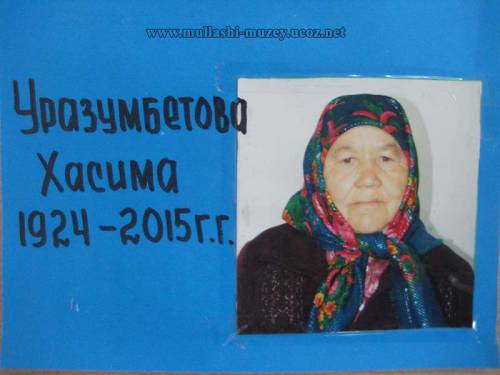 www.mullashi-muzey.ucoz.net
Уразумбетова
Хасима
1924-2015г.г.